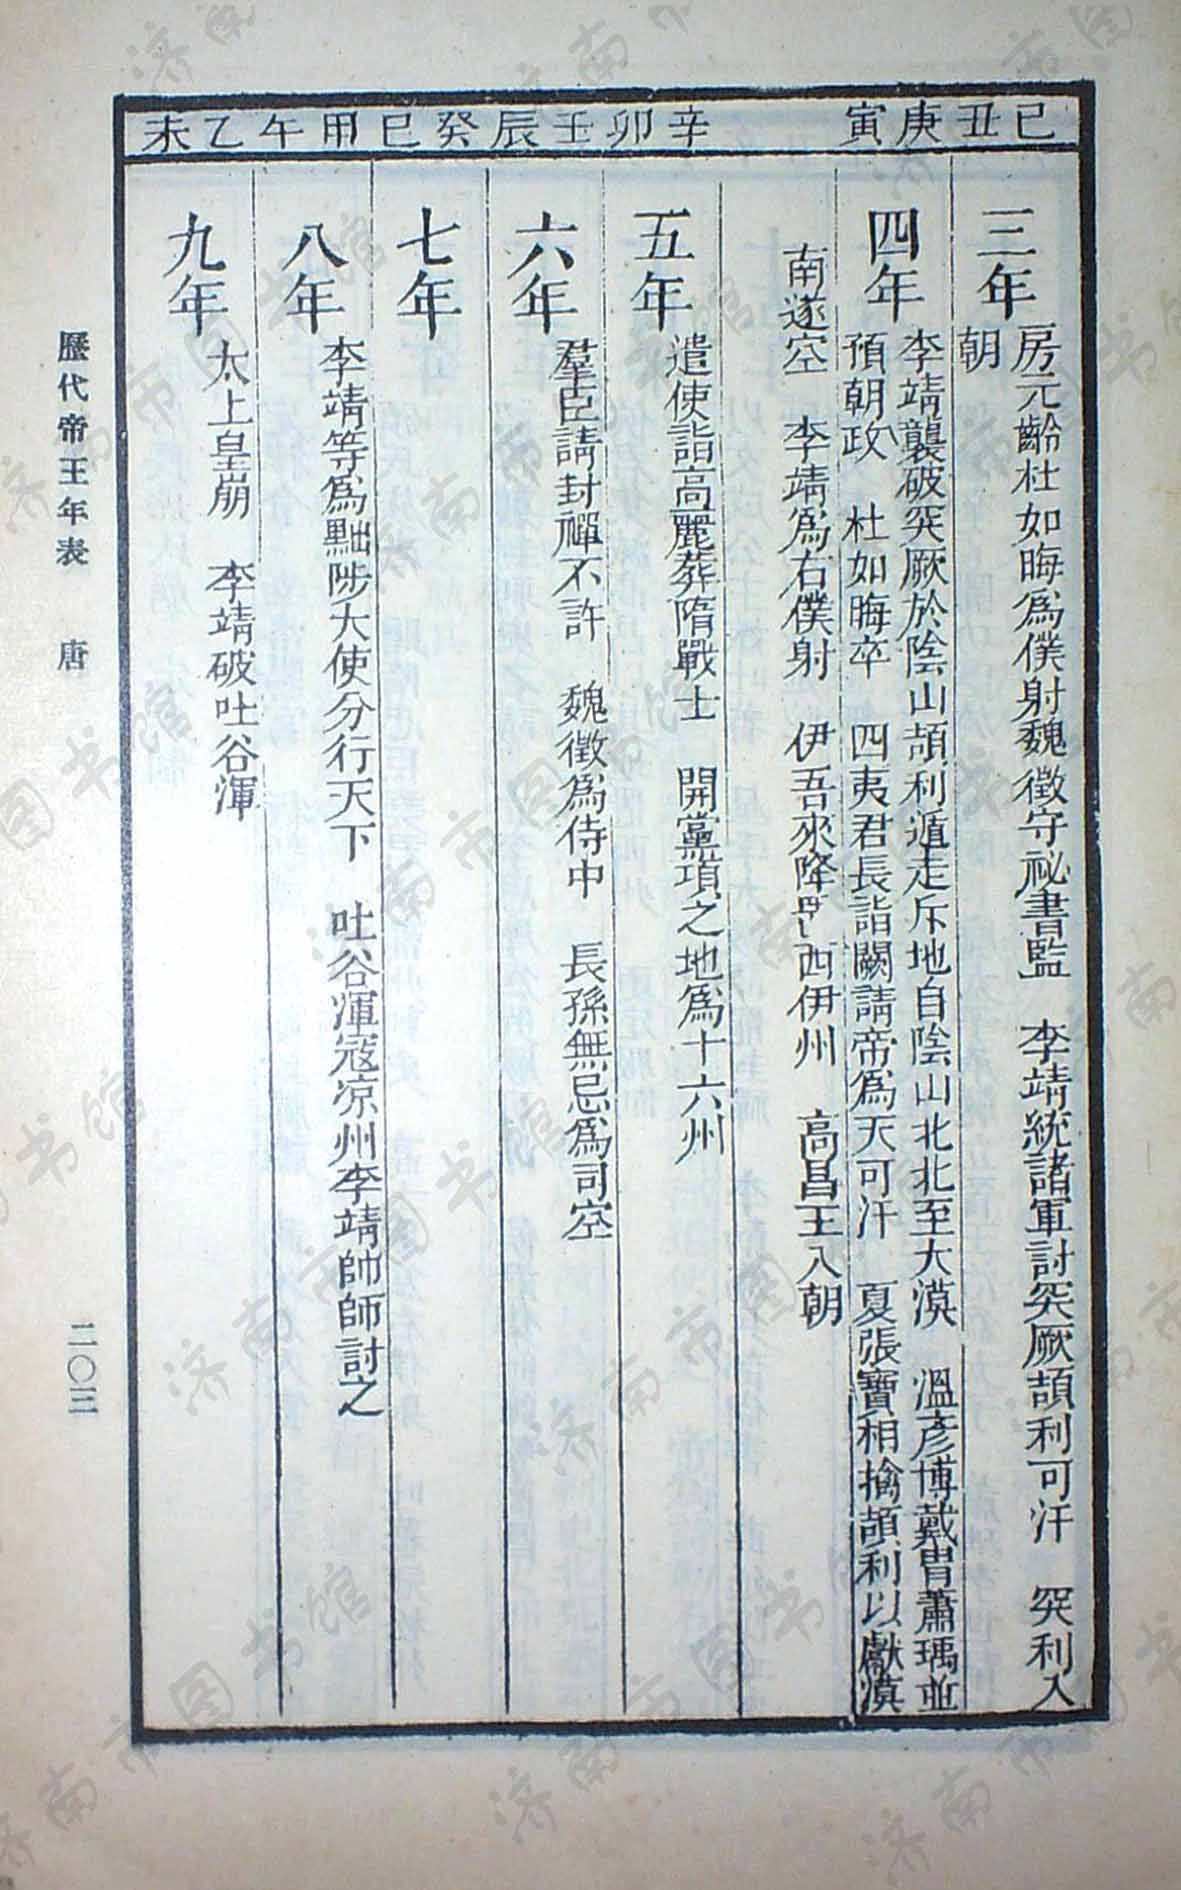 己丑
三年
房元齡杜如晦爲僕射魏徵守祕書監　李靖統諸軍討突厥頡利可汗　突利入
朝
庚寅
四年
李靖襲破突厥於陰山頡利遁走斥地自陰山北北至大漠　溫彥博戴胄蕭瑀並
預朝政　杜如晦卒　四夷君長詣闕請帝爲天可汗　夏張寶相擒頡利以獻漠
南遂空　李靖爲右僕射　伊吾來降 西伊州　高昌王入朝
辛卯
五年
遣使詣高麗葬隋戰士　開黨項之地爲十六州
壬辰
六年
羣臣請封禪不許　魏徵爲侍中　長孫無忌爲司空
癸巳
七年
甲午
八年
李靖等爲黜陟大使分行天下　吐谷渾寇凉州李靖帥師討之
乙未
九年
太上皇崩　李靖破吐谷渾
歷代帝王年表　唐
二〇三
济南市图书馆